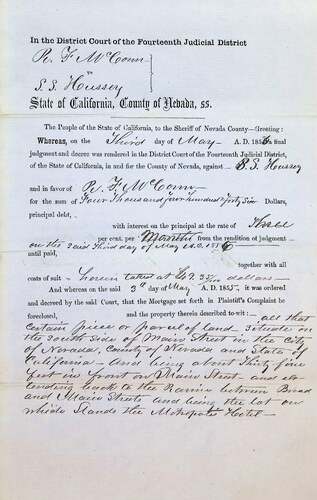 In the District Court of the Fourteenth Judicial District
R. F. McConn
vs
S. S. Hussey
State of California, County of Nevada, ss.
The People of the State of California, to the Sheriff of Nevada County—Greeting:
Whereas, on the Third day of May A. D. 1856 a final
judgment and decree was rendered in the District Court of the Fourteenth Judicial District,
of the State of California, in and for the County of Nevada, against S. S. Hussey
and in favor of R. F. McConn
for the sum of Four Thousand four hundred & forty six Dollars,
principal debt,
with interest on the principal at the rate of Three
per cent. per Month from the rendition of judgment
on the said Third day of May A.D. 1856
until paid,
together with all
costs of suit herein taxed at dollars
And whereas on the said 3d day of May A. D. 185 , it was ordered
and decreed by the said Court, that the Mortgage set forth in Plaintiff's Complaint be
foreclosed, and the property therein described to wit: all that
certain piece or parcel of land situate on
the South side of Main Street in the City
of Nevada, County of Nevada and State of
California and being about thirty five
feet in front on Main Street and ex
tending back to the Ravine between Broad
and Main Streets and being the lot on
which stands the Metropolis Hotel